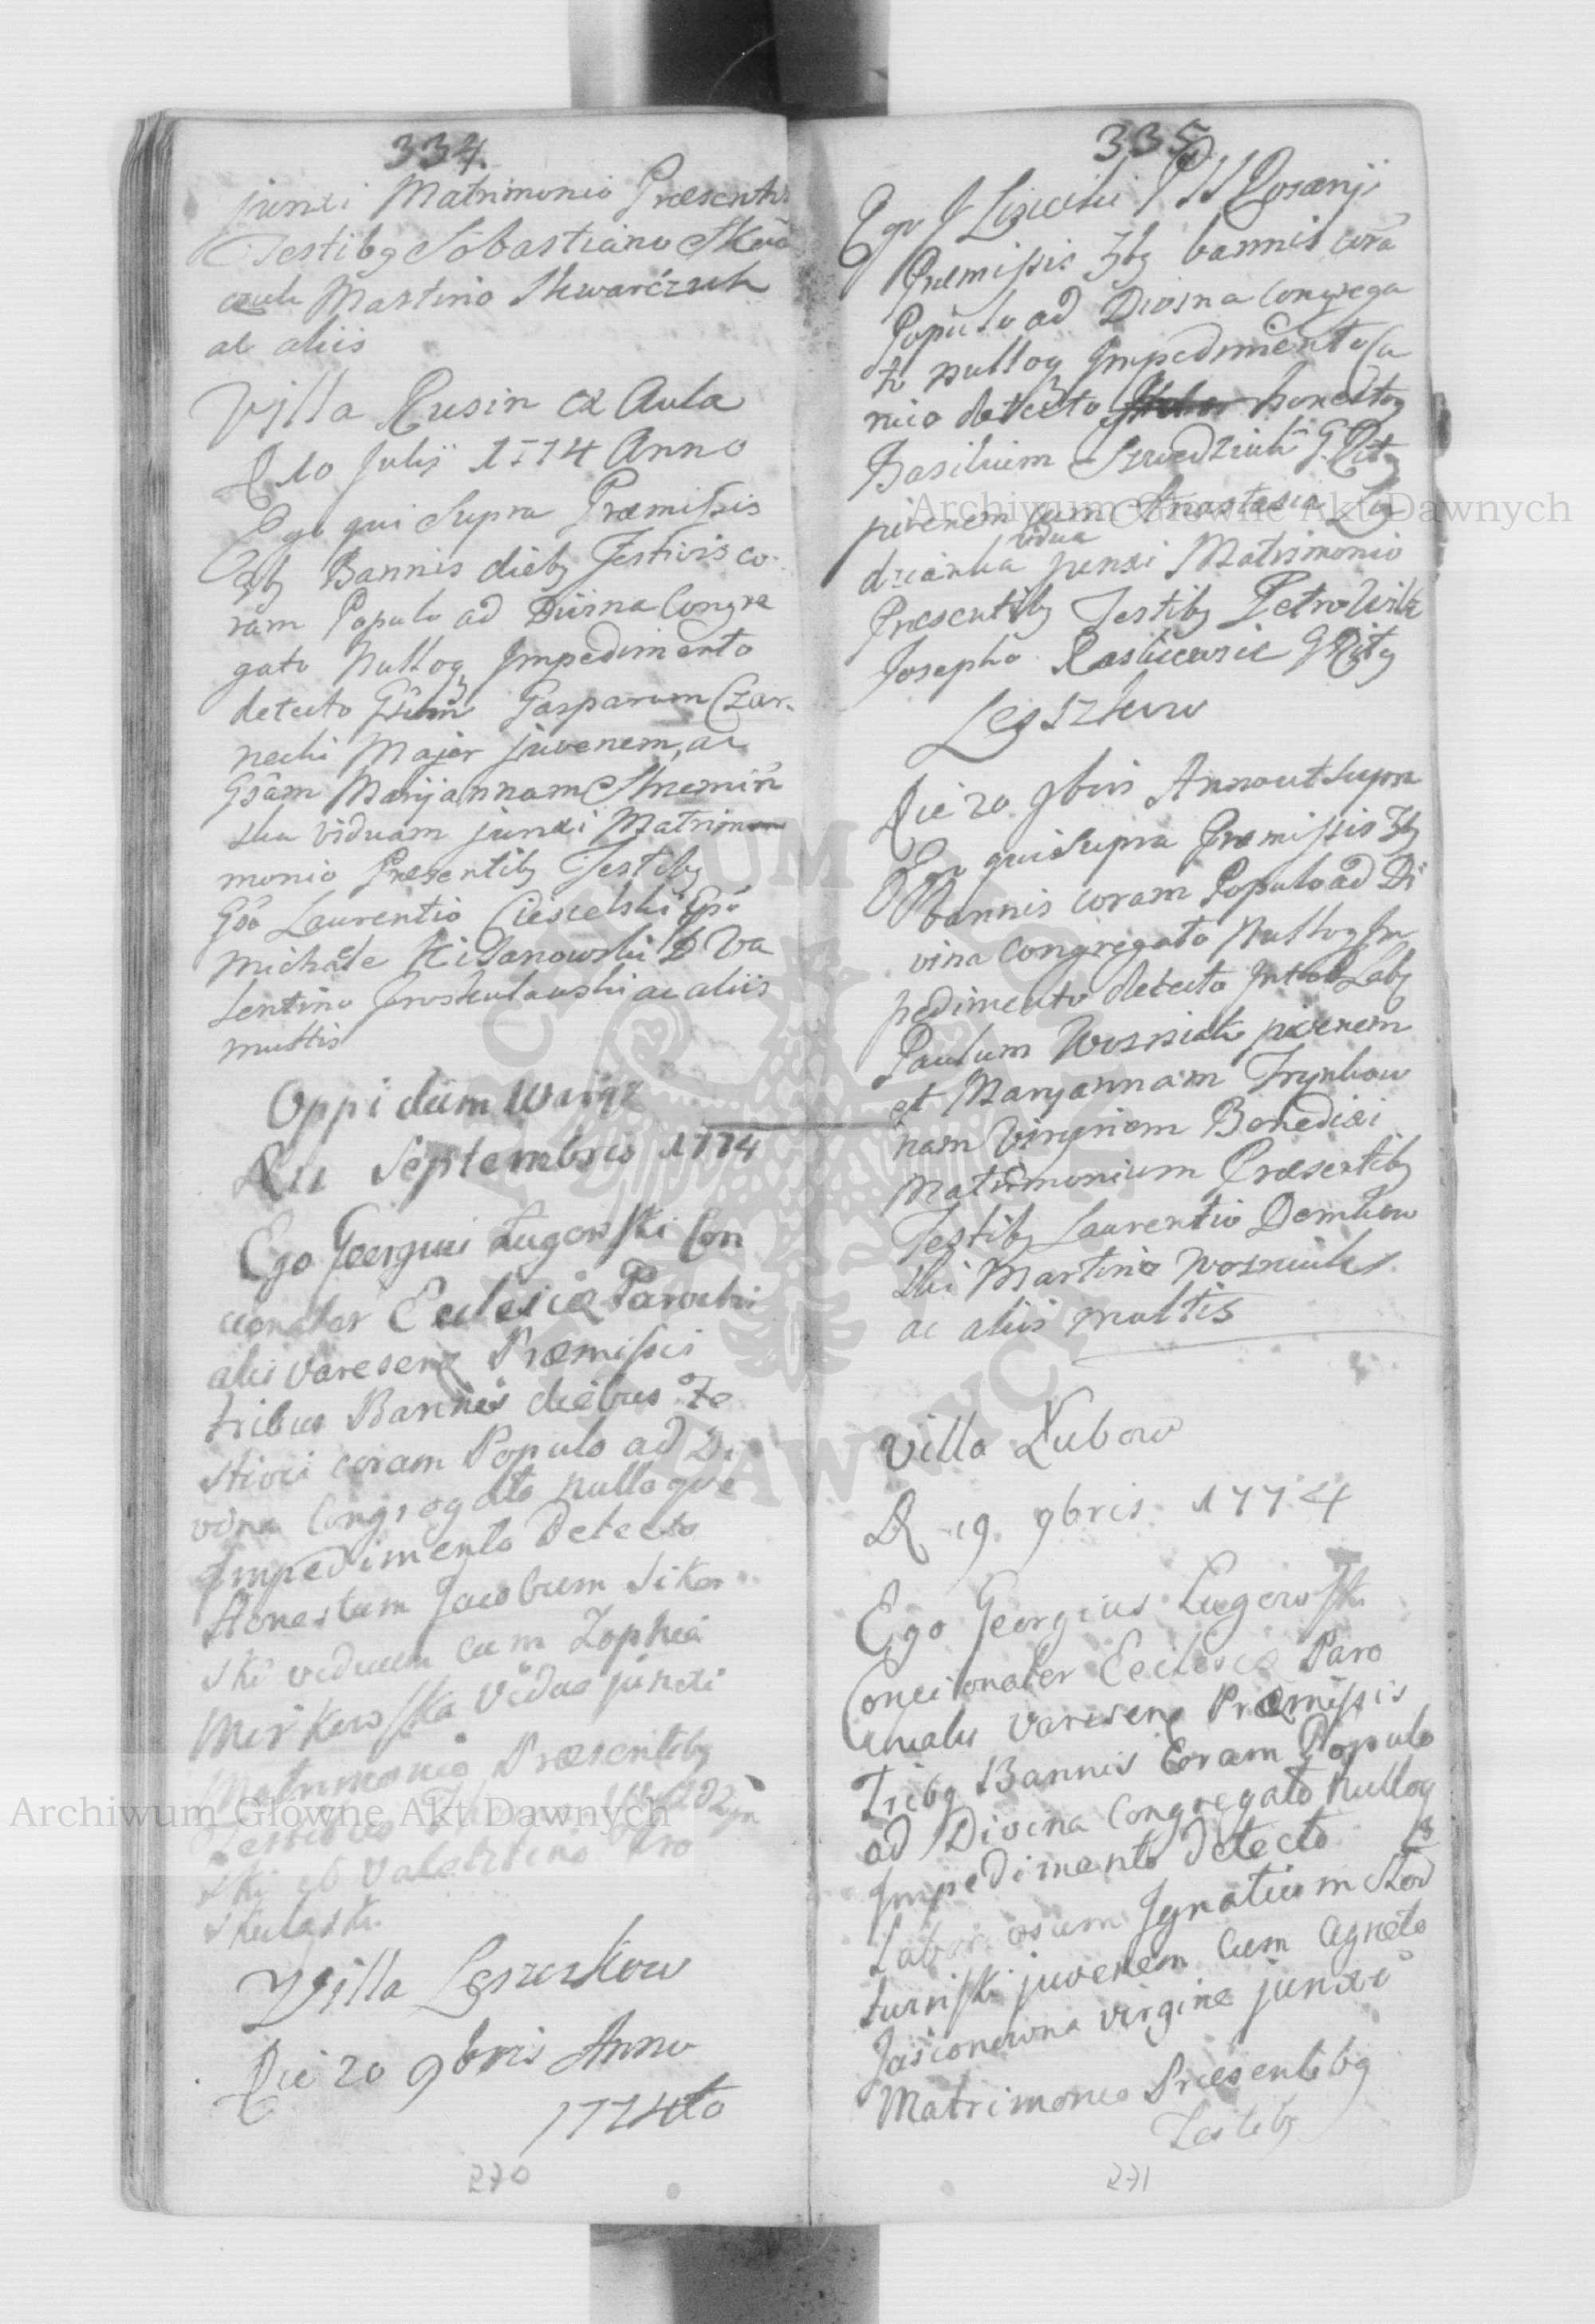 334.
junxi Matrimonio Præsentib9
Testib9 Sobastiano Skwa
czuk Martino Skwarczuk
ac aliis
Villa Rusin ex Aula
D 10 Julij 1774 Anno
Ego qui Supra Præmissis
3b9 Bannis dieb9 Festivis co-
ram Populo ad Diuina Congre
gato Nulloq Impedimento
detecto Gsum Gasparum Czar-
necki Major juvenem, ac
Gsam Marijannam Strzemin
ska viduam junxi Matrimon
monio Presentib9 Testib9
Gso Laurentio Ciesielski Gso
Michale Kisanowski & Va
lentino Proskulauski ac aliis
multis
Oppidum Waręz
D 11 Septembris 1774
Ego Georgius Ługowski Con
cionator Ecclesiæ Parochi
alis Varesens Præmissis
tribus Bannis diebus Fe
stivis coram Populo ad Di
vina Congregato nulloque
Impedimento Detecto
Honestum Jacobum Sikor
ski viduum cum Zophia
Mirkowska Vidua junxi
Matrimonio Præsentib9
Testibus
ski et Valentino Pro
skulaski.
Villa Leszczkow
Die 20 9bris Anno
1774to
270
335
Ego J Lisiecki P W Rosarij
Præmissis 3b9 bannis cora
Populo ad Divina Congrega
to nulloq Impedimento Ca
nico detecto honestoq
Basilium Szwedziuk G Rit9
juvenem cum Anastasia
vidua
dzianka junxi Matrimonio
Præsentib9 Testib9 Petro Wilk
Josepho G Rit9
Leszkow
Die 20 9bris Anno ut supra
Ego qui supra Præmissis 3b9
bannis coram Populo ad Di
vina congregato Nulloq Im
pedimento detecto Lab9
Paulum Wozniak juvenem
et Maryannam Frynkow
nam Virginem Benedixi
Matrimonium Præsentib9
Testib9 Laurentio Dembow
ski Martino Wozniak
ac aliis multis
Villa Łubow
D 19 9bris 1774
Ego Georgius Ługowski
Concionator Ecclesiæ Paro
chialis Varesens Præmissis
Trib9 Bannis Coram Populo
ad Divina Congregato Nulloq
Impedimento Detecto
Laboriosum Ignatium Skod
turnski juvenem Cum Agneta
Jasionowna virgine junxi
Matrimonio Præsentib9
Testib9
271
Archiwum Główne Akt Dawnych
Archiwum Główne Akt Dawnych